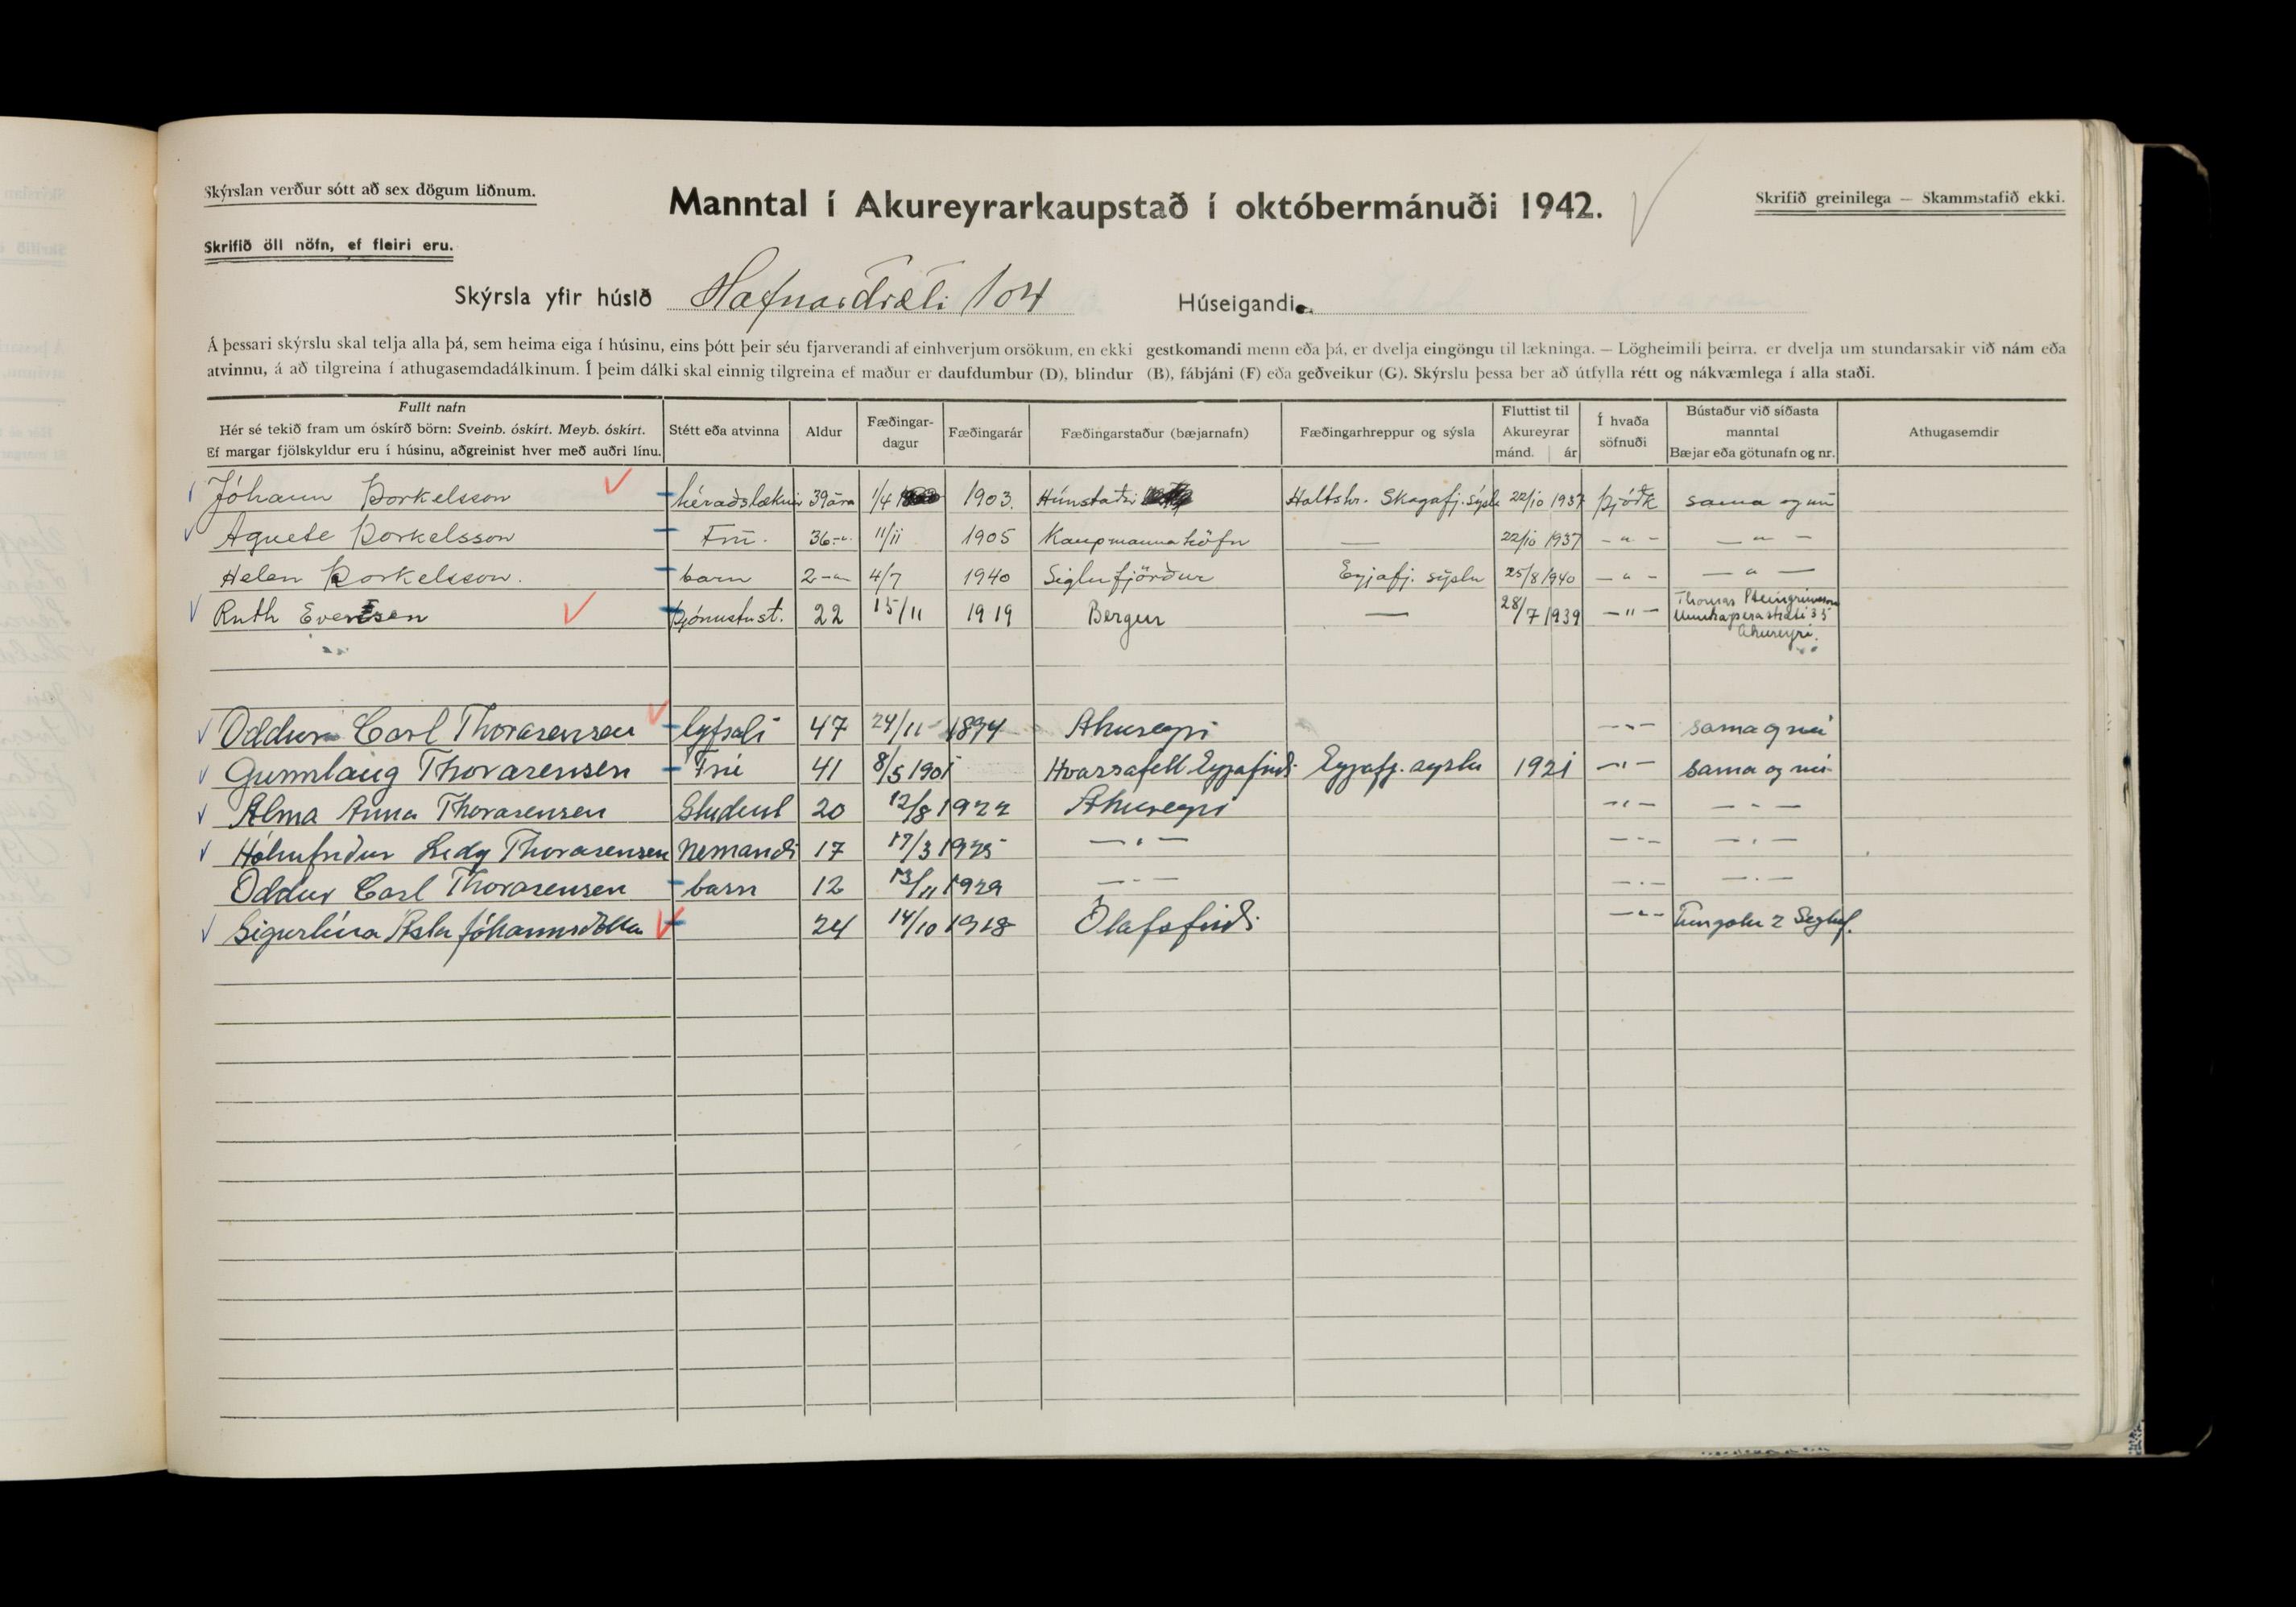 Skýrslan verður sótt að sex dögum liðnum.
Manntal í Akureyrarkaupstað í októbermánuði 1942.
Skrifið greinilega — Skammstafið ekki.
Skrifið öll nöfn, ef fleiri eru.
Skýrsla yfir húsið Hafnarstræti 104 Húseigandi
Á þessari skýrslu skal telja alla þá, sem heima eiga í húsinu, eins þótt þeir séu fjarverandi af einhverjum orsökum, en ekki gestkomandi menn eða þá, er dvelja eingöngu til lækninga. — Lögheimili þeirra, er dvelja um stundarsakir við nám eða
atvinnu, á að tilgreina í athugasemdadálkinum. Í þeim dálki skal einnig tilgreina ef maður er daufdumbur (D), blindur (B), fábjáni (F) eða geðveikur (G). Skýrslu þessa ber að útfylla rétt og nákvæmlega í alla staði.
Fullt nafn
Hér sé tekið fram um óskírð börn: Sveinb. óskírt. Meyb. óskírt.
Ef margar fjölskyldur eru í húsinu, aðgreinist hver með auðri línu.
Stétt eða atvinna
Aldur
Fæðingar-
dagur
Fæðingarár
Fæðingarstaður (bæjarnafn)
Fæðingarhreppur og sýsla
Fluttist til
Akureyrar
mánd. ár
Í hvaða
söfnuði
Bústaður við síðasta
manntal
Bæjar eða götunafn og nr.
Athugasemdir
Jóhann Þorkelsson héraðslæknir 39 ára 1/4 1903. Húnstaðir Holtshr. Skagafj.sýslu 22/10 1937 þjóðk sama og nú
Agnete Þorkelsson Frú. 36 -"- 11/11 1905 Kaupmannahöfn — 22/10 1937 - " - — " —
Helen Þorkelsson. barn 2 -"- 4/7 1940 Siglufjörður Eyjafj. sýslu 25/8 1940 - " - — " —
Ruth Evensen þjónustust. 22 15/11 1919 Bergen — 28/7 1939 - " - Thomas Steingrímsson
35
Akureyri.
Oddur Carl Thorarensen lyfsali 47 24/11 1894 Akureyri - " - sama og nú
Gunnlaug Thorarensen Frú 41 8/5 1901 Hvassafell Eyjafirði Eyjafj. sýslu 1921 - " - sama og nú
Alma Anna Thorarensen Student 20 12/8 1922 Akureyri - " - — " —
Hólmfríður Ledy Thorarensen Nemandi 17 17/3 1925 — " — - " - — " —
Oddur Carl Thorarensen barn 12 13/11 1929 — " — - " - — " —
Sigurlína Ásta Jóhannsdóttir 24 14/10 1918 Ólafsfirði - " - Túngötu 2 Sigluf.